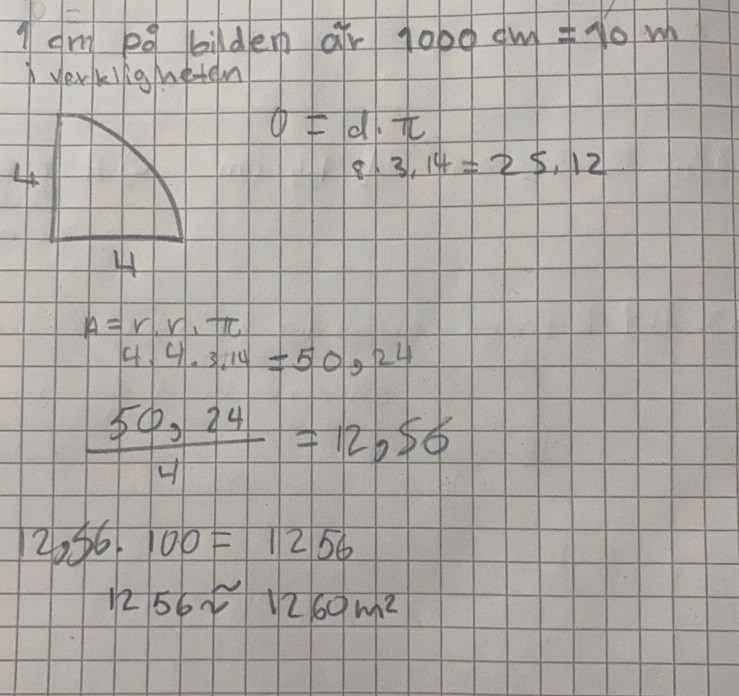 1 cm på bilden är 1000 cm = 10 m
i verkligheten
O = d. π
8. 3,14 = 25,12
4
4
A = r. r. π
4. 4. 3,14 = 50,24
50,24
4
= 12,56
12,56. 100 = 1256
1256 ≈ 1260 m²